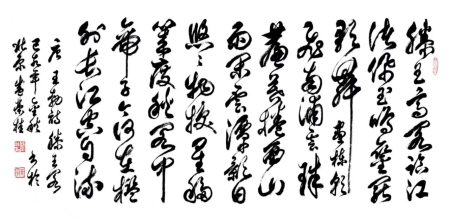 滕王高閣臨江
渚佩玉鳴鸞罷
歌舞畫棟朝
飛南浦雲珠
簾暮捲西山
雨閑雲潭影日
悠悠物換星移
幾度秋閣中
帝子今何在檻
外長江空自流
唐王勃詩滕王閣
書於